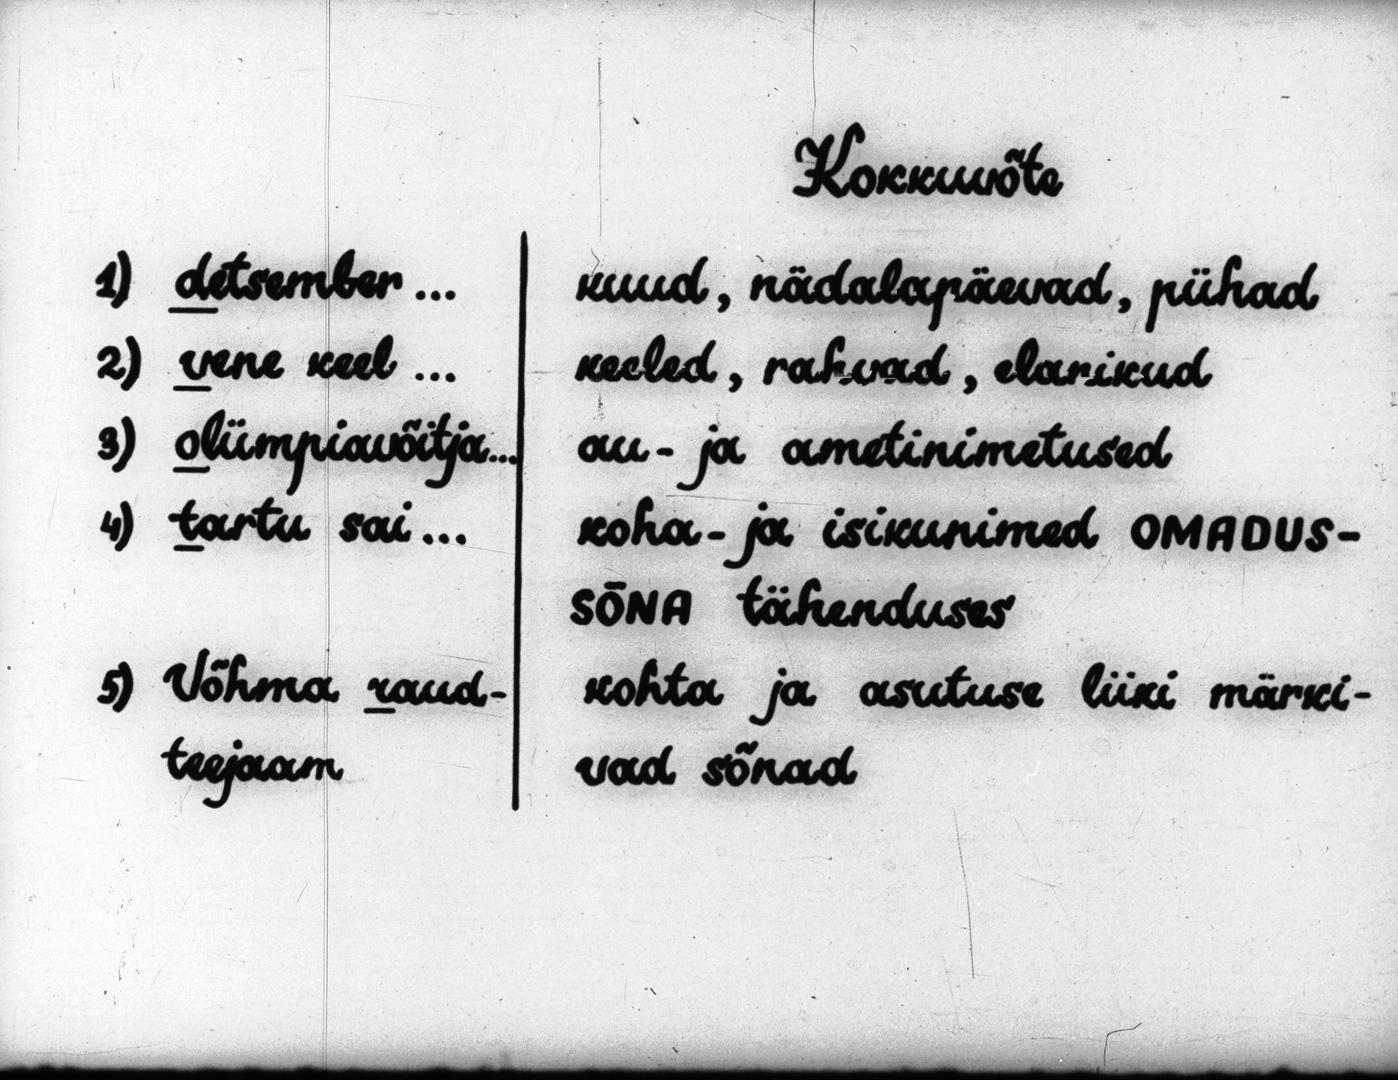 Kokkuvõte
1) detsember... kuud, nädalapäevad, pühad
2) vene keel ... keeled, rahvad, elanikud
3) olümpiavõitja... au- ja ametinimetused
4) tartu sai... koha- ja isikunimed OMADUS-
SÕNA tähenduses
5) Võhma raud- kohta ja asutuse liiki märki-
teejaam vad sõnad